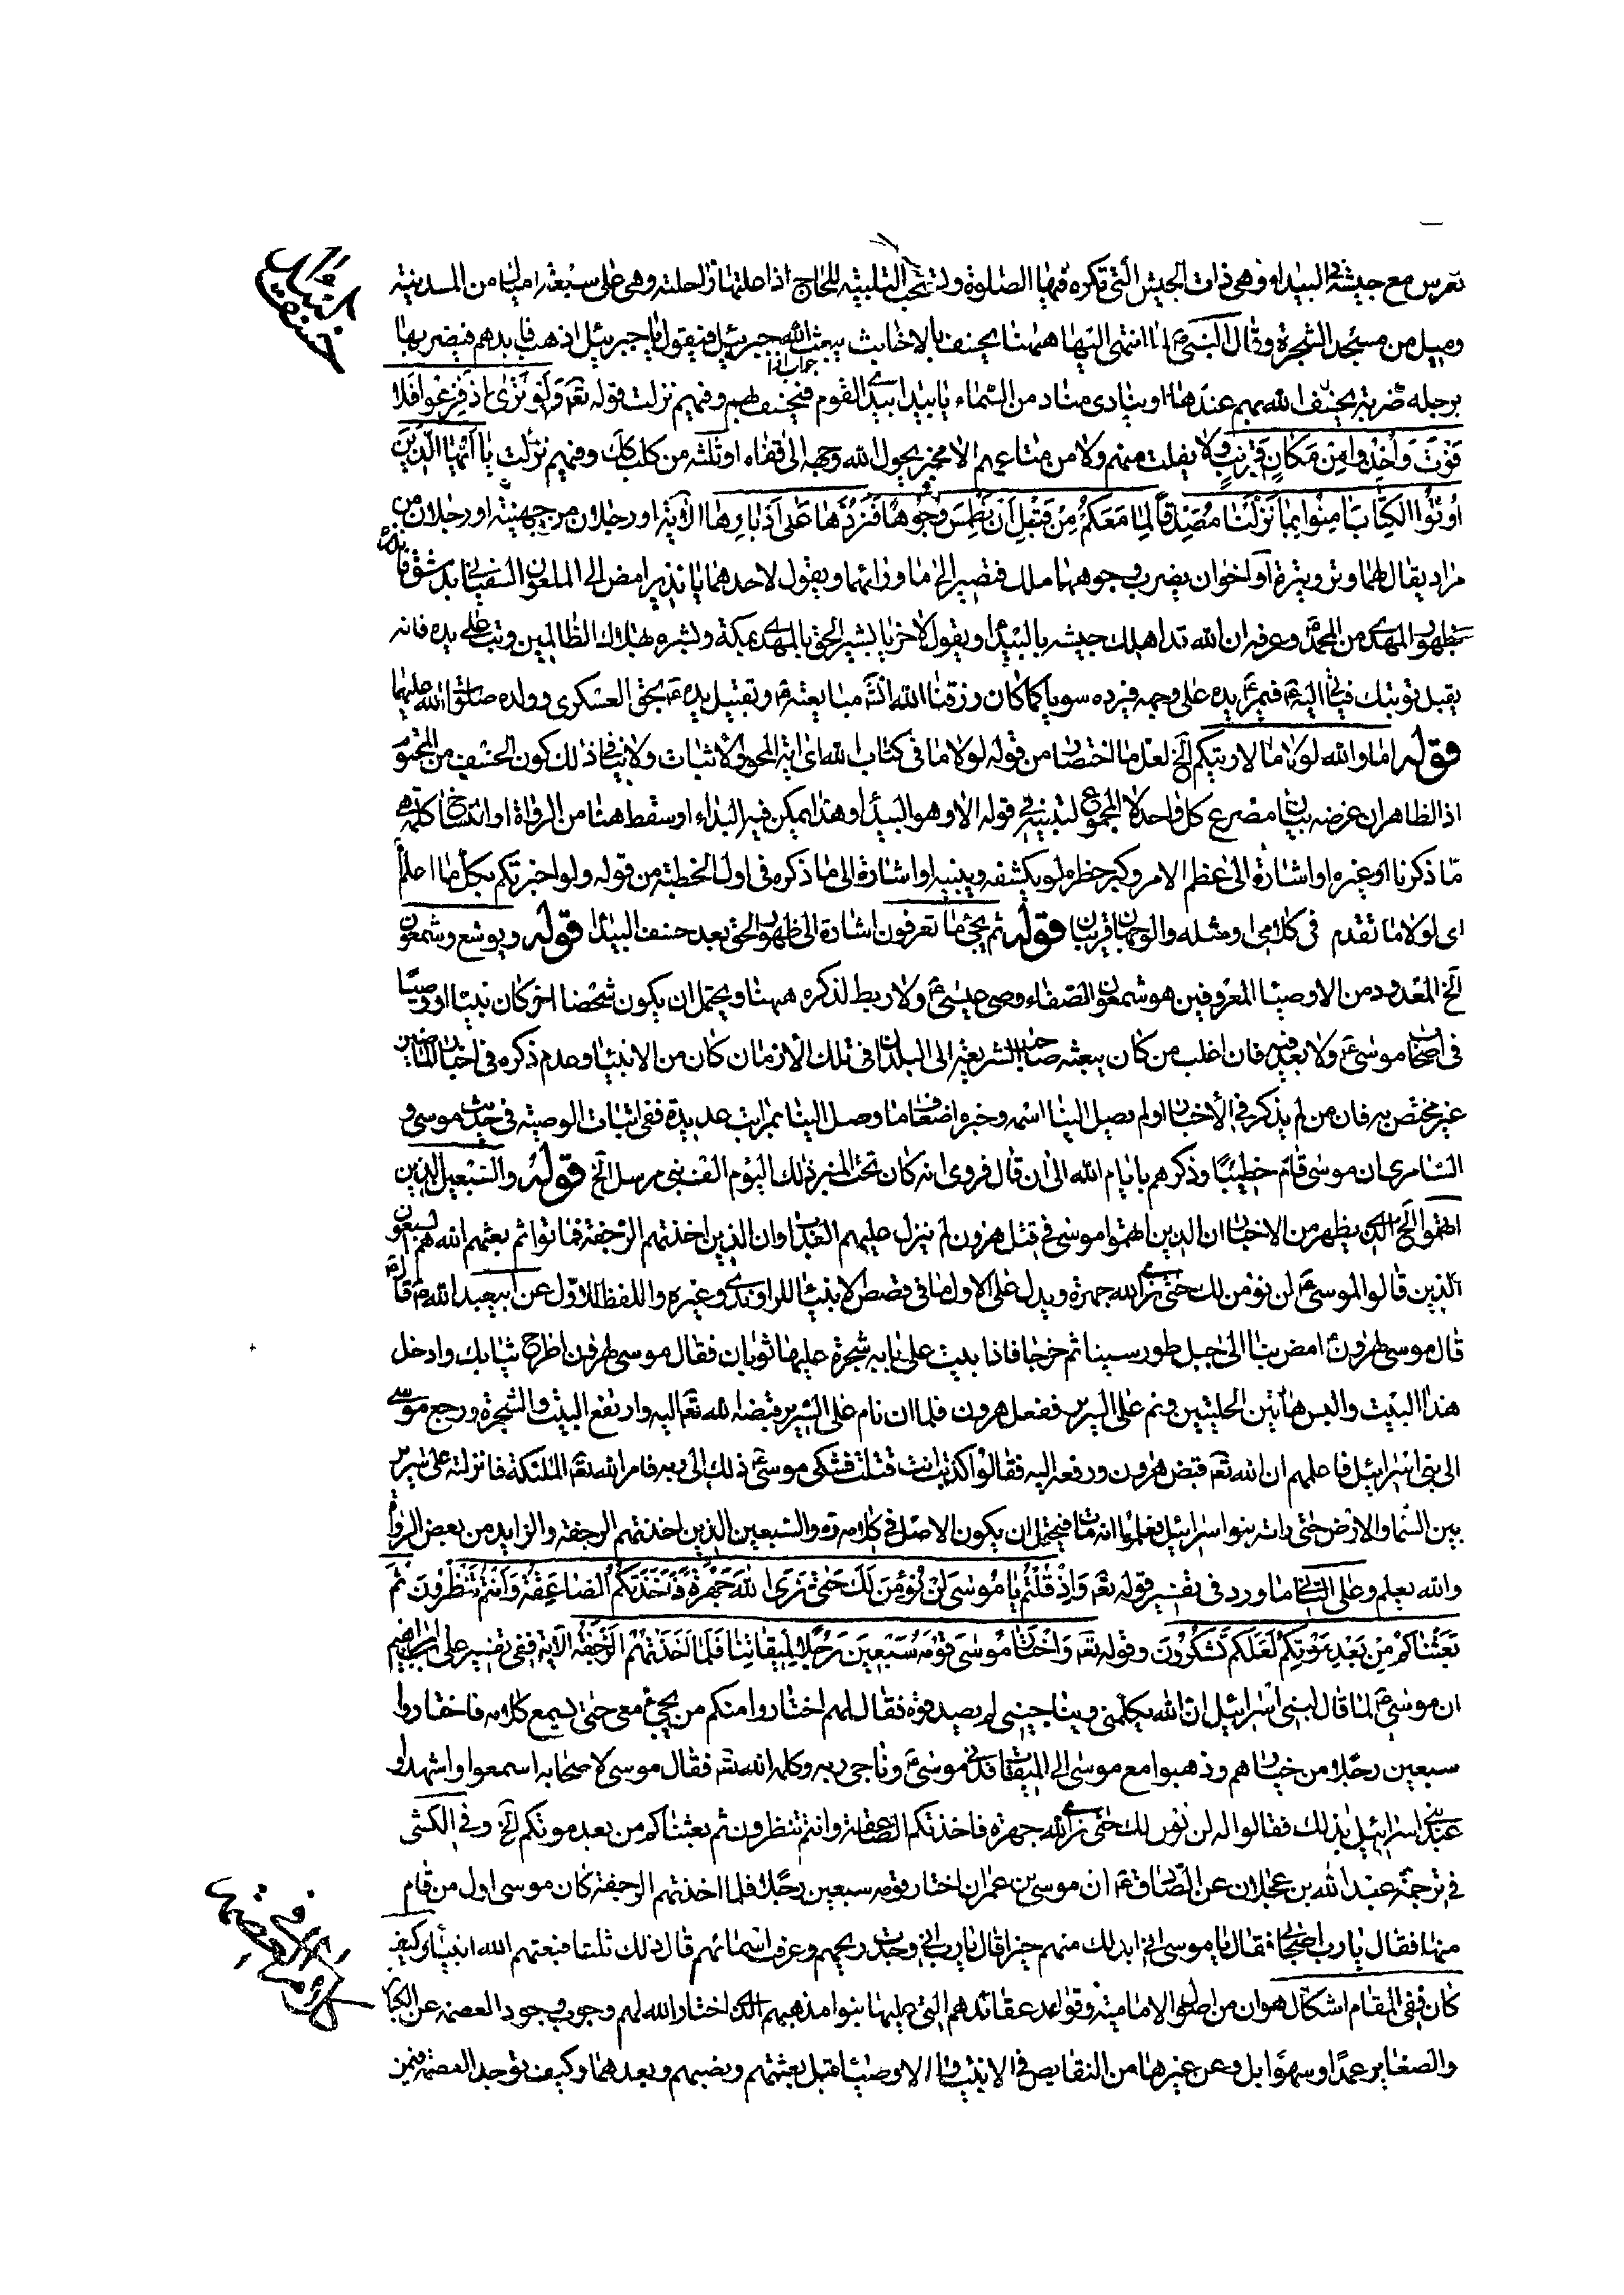 تعرس مع جيشه في البيداء وهي ذات الجيش التي تكره فيها الصلوة ولتحب التلبية للحاج اذا علتها راحلته وهي على سبعة اميال من المدينة
وميل من مسجد الشجرة وقال النبي ص لما انتهى اليها ههنا يخسف بالاخابث يبعث الله جبرئيل فيقول يا جبرئيل اذهب فابدهم فيضربها
برجله ضربة يخسف الله بهم عندها او ينادى مناد من السماء يا بيداء ابيدى القوم فيخسف بهم وفيهم نزلت قوله تعه وَلَوْ تَرٰى اِذْ فَزِعُوا فَلٰا
فَوْتَ وَاُخِذُوا مِنْ مَكٰانٍ قَرِيبٍ ولا يفلت منهم ولا من متاعهم الا مخبر يحول الله وجهه الى قفاه او ثلثه من كلب كك وفيهم نزلت يٰا اَيُّهَا الَّذِينَ
اُوتُوا الْكِتٰابَ اٰمِنُوا بِمٰا نَزَّلْنٰا مُصَدِّقًا لِمٰا مَعَكُمْ مِنْ قَبْلِ اَنْ نَطْمِسَ وُجُوهًا فَنَرُدَّهٰا عَلٰى اَدْبٰارِهٰا الاية او رجلان من جهينة او رجلان من
مراد يقال لهما وتر ووتيرة او اخوان يضرب وجوههما ملك فتصير الى ما ورائهما ويقول لاحدهما يا نذير امض الى الملعون السفياني بدمشق فانذره
بظهور المهدى من آل محمد وعرفه ان الله قد اهلك جيشه بالبيداء ويقول للاخر يا بشير الحق بالمهدى بمكة وبشره بهلاك الظالمين وتب على يده فانه
يقبل توبتك فياتي اليه ع فيمر ع يده على وجهه فيرده سويا كما كان ورزقنا الله انشه مبايعته ع وتقبيل يده ع بحق العسكرى وولده صلوات الله عليهما
قوله اما والله لولا ما لاريتكم الخ لعل ما اختصار من قوله لولا ما في كتاب الله اي اية المحو والاثبات ولا ينافي ذلك كون الخسف من المحتوم
اذ الظاهر ان غرضه بيان مصرع كل واحد لا المجموع لتبنيه في قوله الا وهو البيداء وهذا يمكن فيه البداء او سقط هنا من الرواة او النساخ كلمه هي
ما ذكرنا او غيره او اشارة الى عظم الامر وكبر خطره لو يكشفه ويبنيه او اشارة الى ما ذكره في اول الخطبة من قوله ولو اخبرتكم بكل ما اعلم
اى لولا ما تقدم في كلامي او مثله والوجهان قريبان قوله ثم يجئ ما تعرفون اشارة الى ظهور الحق بعد خسف البيداء قوله ويوشع وشمعون
الخ المعدود من الاوصياء المعروفين هو شمعون الصفاء وصى عيسى ع ولا ربط لذكره ههنا ويحتمل ان يكون شخصا اخر كان نبيا او وصيا
في اصحاب موسى ع ولا بعد فيه فان اغلب من كان يبعثه صاحب الشريعة الى البلدان في تلك الازمان كان من الانبياء وعدم ذكره في اخبار الماضين
غير مختص به فان من لم يذكر في الاخبار او لم يصل الينا اسمه وخبره اضعاف ما وصل الينا بمراتب عديدة ففي اثبات الوصية في حديث موسى و
السامرى ان موسى قام خطيبا وذكرهم بايام الله الى ان قال فروى انه كان تحت المنبر ذلك اليوم الف نبي مرسل الخ قوله والسبعين الذين
اتهموا الخ الذى يظهر من الاخبار ان الذين اتهموا موسى في قتل هرون لم ينزل عليهم العذاب وان الذين اخذتهم الرجفة فماتوا ثم بعثهم الله هم السبعون
الذين قالوا لموسى ع لن نؤمن لك حتى نرى الله جهرة ويدل على الاول ما في قصص الانبياء للراوندى وغيره واللفظ للاول عن ابيعبد الله ع قال
قال موسى لهرون ع امض بنا الى جبل طور سينا ثم خرجا فاذا بيت على بابه شجرة عليها ثوبان فقال موسى لهرون اطرح ثيابك وادخل
هذا البيت والبس هاتين الحلتين ونم على السرير ففعل هرون فلما ان نام على السرير قبضه الله تعه اليه وارتفع البيت والشجرة ورجع موسى
الى بني اسرائيل فاعلمهم ان الله تعه قبض هرون ورفعه اليه فقالوا كذبت انت قتلته فشكى موسى ع ذلك الى ربه فامر الله تعه الملئكة فانزلته على سرير
بين السماء والارض حتى راته بنو اسرائيل فعلموا انه مات فيحتمل ان يكون الاصل في كلامه ره والسبعين الذين اخذتهم الرجفة والزايد من بعض الرواة
والله يعلم وعلى الثاني ما ورد في تفسير قوله تعه وَاِذْ قُلْتُمْ يٰا مُوسٰى لَنْ نُؤْمِنَ لَكَ حَتّٰى نَرَى اللهَ جَهْرَةً فَاَخَذَتْكُمُ الصّٰاعِقَةُ وَاَنْتُمْ تَنْظُرُونَ ثُمَّ
بَعَثْنٰاكُمْ مِنْ بَعْدِ مَوْتِكُمْ لَعَلَّكُمْ تَشْكُرُونَ وقوله تعه وَاخْتٰارَ مُوسٰى قَوْمَهُ سَبْعِينَ رَجُلًا لِمِيقٰاتِنٰا فَلَمّٰا اَخَذَتْهُمُ الرَّجْفَةُ الاية ففي تفسير علي بن ابراهيم
ان موسى ع لما قال لبني اسرائيل ان الله يكلمني ويناجيني لم يصدقوه فقال لهم اختاروا منكم من يجئ معى حتى يسمع كلامه فاختاروا
سبعين رجلا من خيارهم وذهبوا مع موسى الى الميقات فدنى موسى ع وناجى ربه وكلمه الله تعه فقال موسى لاصحابه اسمعوا واشهدوا
عند بني اسرائيل بذلك فقالوا له لن نؤمن لك حتى نرى الله جهرة فاخذتكم الصاعقة وانتم تنظرون ثم بعثناكم من بعد موتكم الخ وفي الكشى
في ترجمة عبد الله بن عجلان عن الصادق ع ان موسى بن عمران اختار قومه سبعين رجلا فلما اخذتهم الرجفة كان موسى اول من قام
منها فقال يا رب اصحابي فقال يا موسى اني ابدلك منهم خيرا قال يا رب اني وجدت ريحهم وعرفت اسمائهم قال ذلك ثلثا فبعثهم الله انبياء وكيف
كان ففي المقام اشكال هو ان من اصول الامامية وقواعد عقائدهم التي عليها بنوا مذهبهم الذى اختار الله لهم وجوب وجود العصمة عن الكبائر
والصغاير عمدا وسهوا بل وعن غيرها من النقايص في الانبياء والاوصياء قبل بعثتهم ونصبهم وبعدهما وكيف توجد العصمة فيمن